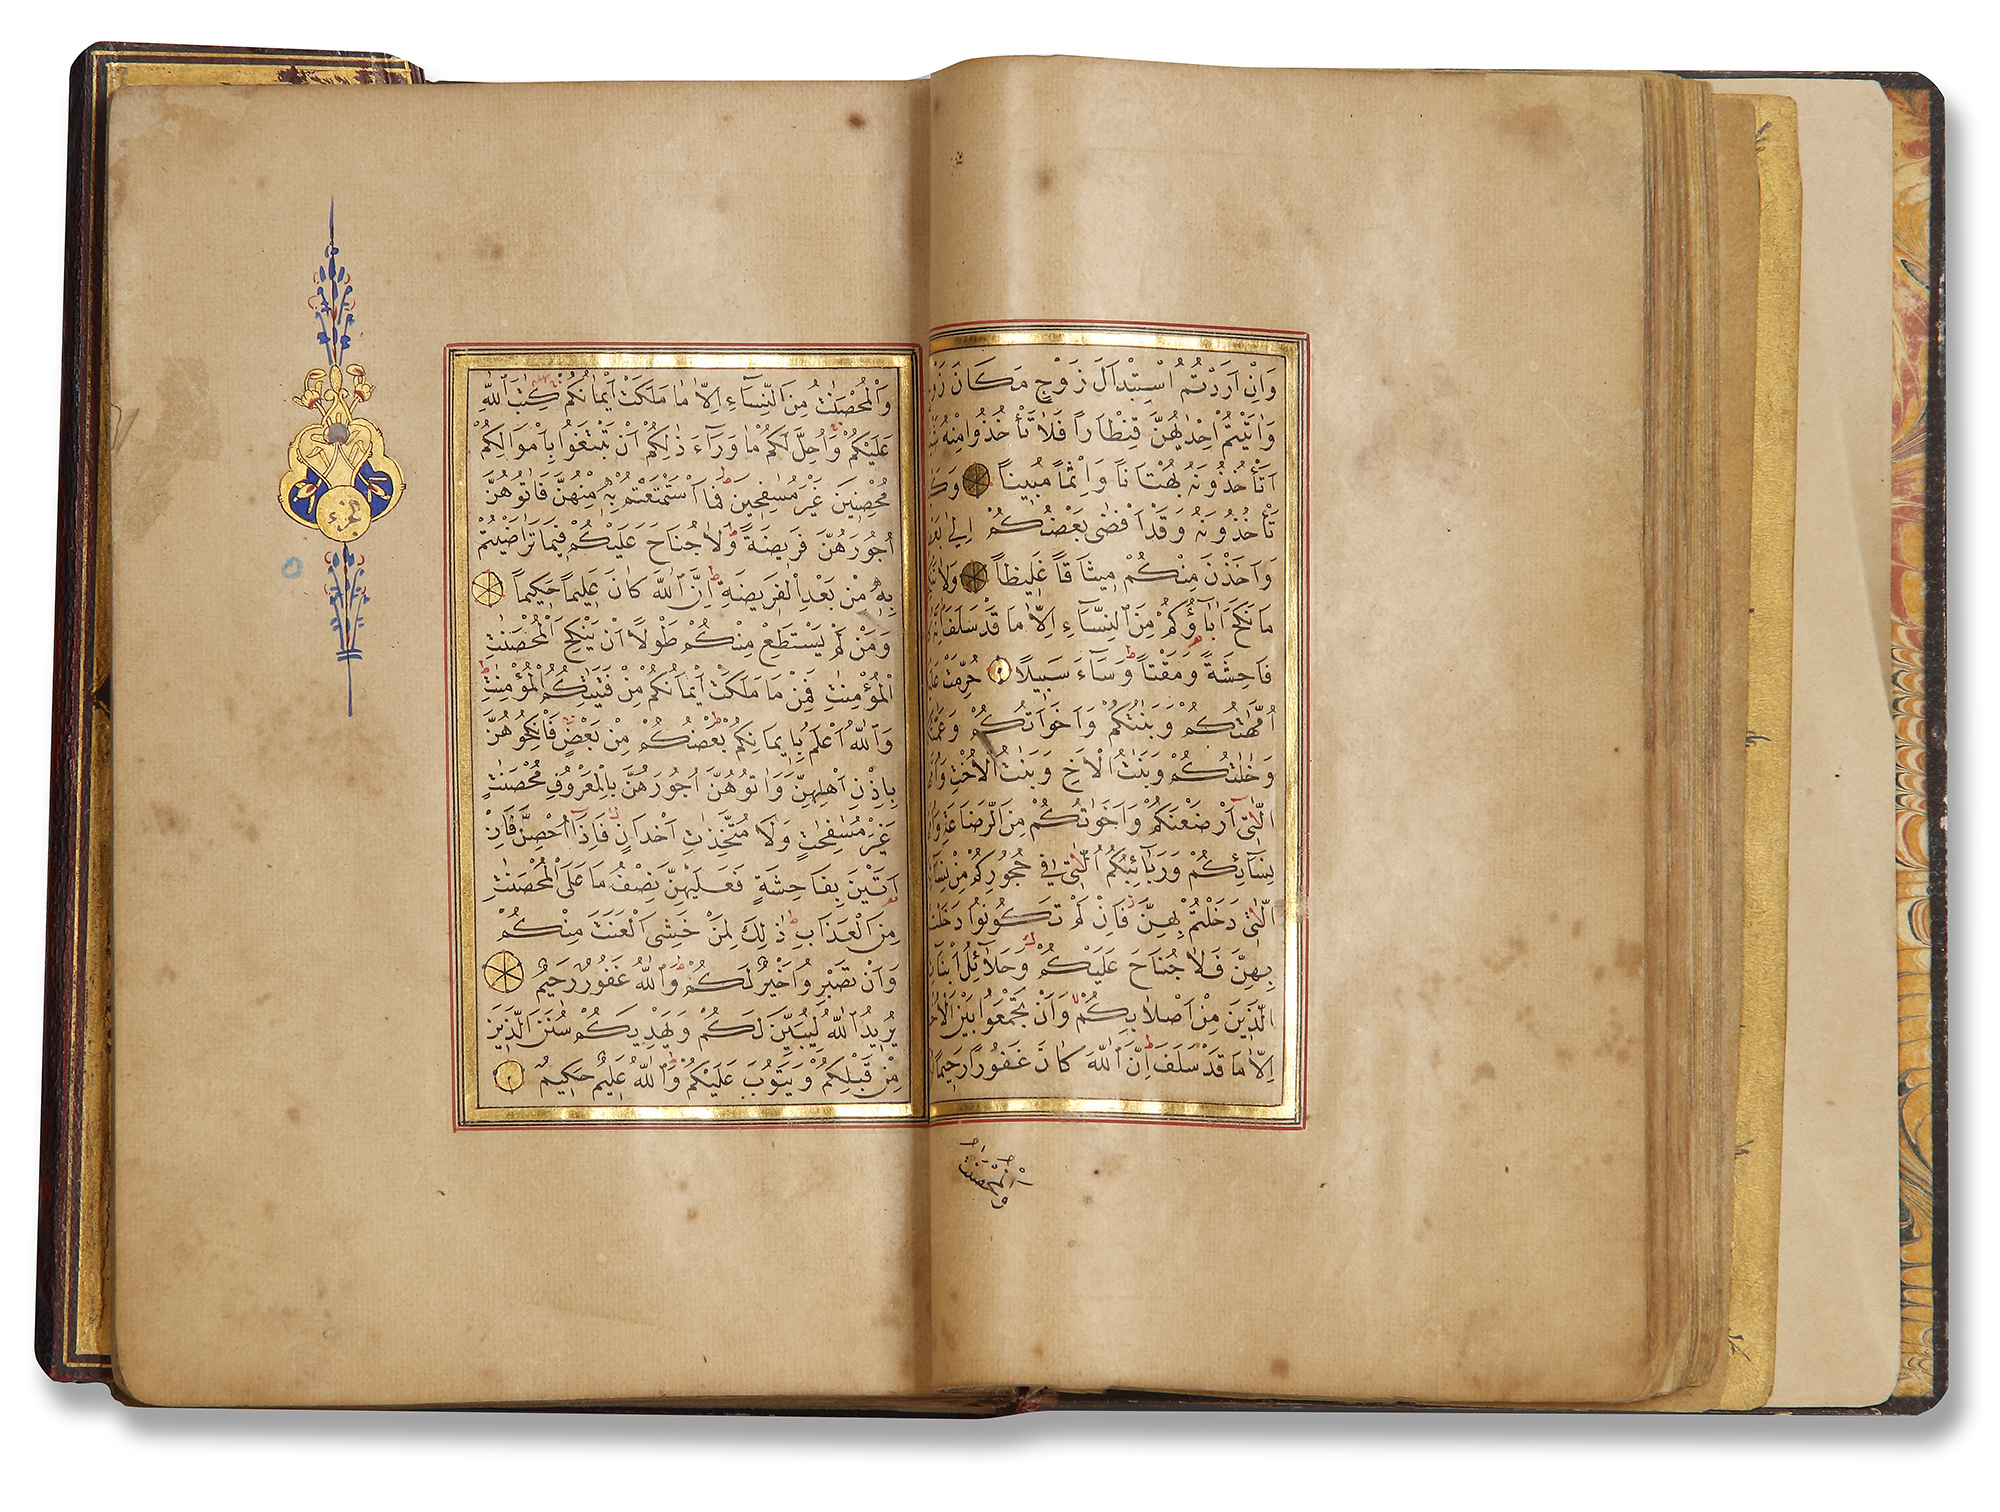 وَاِنْ اَرَدْتُمُ اسْتِبْدَالَ زَوْجٍ مَكَانَ زَوْجٍ
وَاٰتَيْتُمْ اِحْدٰيهُنَّ قِنْطَاراً فَلَا تَأْخُذُوا مِنْهُ
اَتَأْخُذُونَهُ بُهْتَاناً وَاِثْماً مُبِيناً
تَأْخُذُونَهُ وَقَدْ اَفْضٰى بَعْضُكُمْ اِلٰى بَعْضٍ
وَاَخَذْنَ مِنْكُمْ مِيثَاقاً غَلِيظاً وَلَا
مَا نَكَحَ اٰبَاۤؤُكُمْ مِنَ النِّسَاۤءِ اِلَّا مَا قَدْ سَلَفَ اِنَّهُ
فَاحِشَةً وَمَقْتاً وَسَاۤءَ سَبِيلاً حُرِّمَتْ
اُمَّهَاتُكُمْ وَبَنَاتُكُمْ وَاَخَوَاتُكُمْ
وَخَالَاتُكُمْ وَبَنَاتُ الْاَخِ وَبَنَاتُ الْاُخْتِ
الّٰتِۤى اَرْضَعْنَكُمْ وَاَخَوَاتُكُمْ مِنَ الرَّضَاعَةِ
نِسَاۤئِكُمْ وَرَبَاۤئِبُكُمُ الّٰتِى فِى حُجُورِكُمْ مِنْ
الّٰتِى دَخَلْتُمْ بِهِنَّ فَاِنْ لَمْ تَكُونُوا
بِهِنَّ فَلَا جُنَاحَ عَلَيْكُمْ وَحَلَاۤئِلُ
الَّذِينَ مِنْ اَصْلَابِكُمْ وَاَنْ تَجْمَعُوا بَيْنَ
اِلَّا مَا قَدْ سَلَفَ اِنَّ اللّٰهَ كَانَ غَفُوراً رَحِيماً
وَالْمُحْصَنَاتُ
وَالْمُحْصَنَاتُ مِنَ النِّسَاۤءِ اِلَّا مَا مَلَكَتْ اَيْمَانُكُمْ كِتَابَ اللّٰهِ
عَلَيْكُمْ وَاُحِلَّ لَكُمْ مَا وَرَاۤءَ ذٰلِكُمْ اَنْ تَبْتَغُوا بِاَمْوَالِكُمْ
مُحْصِنِينَ غَيْرَ مُسَافِحِينَ فَمَا اسْتَمْتَعْتُمْ بِهِ مِنْهُنَّ فَاٰتُوهُنَّ
اُجُورَهُنَّ فَرِيضَةً وَلَا جُنَاحَ عَلَيْكُمْ فِيمَا تَرَاضَيْتُمْ
بِهِ مِنْ بَعْدِ الْفَرِيضَةِ اِنَّ اللّٰهَ كَانَ عَلِيماً حَكِيماً
وَمَنْ لَمْ يَسْتَطِعْ مِنْكُمْ طَوْلاً اَنْ يَنْكِحَ الْمُحْصَنَاتِ
الْمُؤْمِنَاتِ فَمِنْ مَا مَلَكَتْ اَيْمَانُكُمْ مِنْ فَتَيَاتِكُمُ الْمُؤْمِنَاتِ
وَاللّٰهُ اَعْلَمُ بِاِيمَانِكُمْ بَعْضُكُمْ مِنْ بَعْضٍ فَانْكِحُوهُنَّ
بِاِذْنِ اَهْلِهِنَّ وَاٰتُوهُنَّ اُجُورَهُنَّ بِالْمَعْرُوفِ مُحْصَنَاتٍ
غَيْرَ مُسَافِحَاتٍ وَلَا مُتَّخِذَاتِ اَخْدَانٍ فَاِذَاۤ اُحْصِنَّ فَاِنْ
اَتَيْنَ بِفَاحِشَةٍ فَعَلَيْهِنَّ نِصْفُ مَا عَلَى الْمُحْصَنَاتِ
مِنَ الْعَذَابِ ذٰلِكَ لِمَنْ خَشِىَ الْعَنَتَ مِنْكُمْ
وَاَنْ تَصْبِرُوا خَيْرٌ لَكُمْ وَاللّٰهُ غَفُورٌ رَحِيمٌ
يُرِيدُ اللّٰهُ لِيُبَيِّنَ لَكُمْ وَيَهْدِيَكُمْ سُنَنَ الَّذِينَ
مِنْ قَبْلِكُمْ وَيَتُوبَ عَلَيْكُمْ وَاللّٰهُ عَلِيمٌ حَكِيمٌ